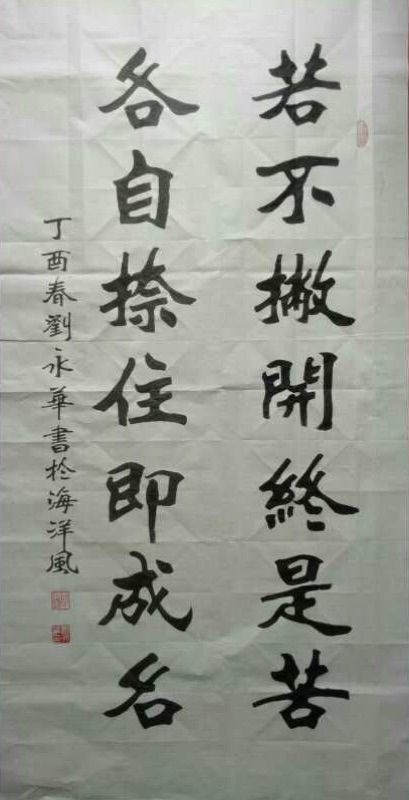 若不撇開終是苦
各自捺住即成名
丁酉春劉永華書於海洋風